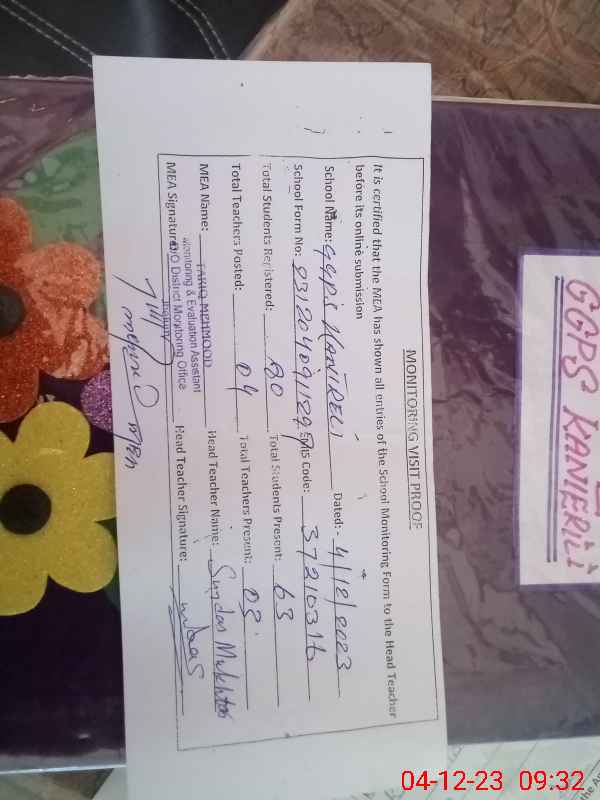 MONITORING VISIT PROOF
It is certified that the MEA has shown all entries of the School Monitoring Form to the Head Teacher
before its online submission
School Name: GGPS KANIRELI Dated:- 4/12/2023
School Form No: EMIS Code: 37210316
Total Students Registered: 80 Total Students Present: 63
Total Teachers Posted: 04 Total Teachers Present: 03
MEA Name: TARIQ MEHMOOD Head Teacher Name: Sundas Mukhtar
Monitoring & Evaluation Assistant
O/O District Monitoring Office
MEA Signature: Head Teacher Signature:
GGPS KANIERILI
04-12-23 09:32